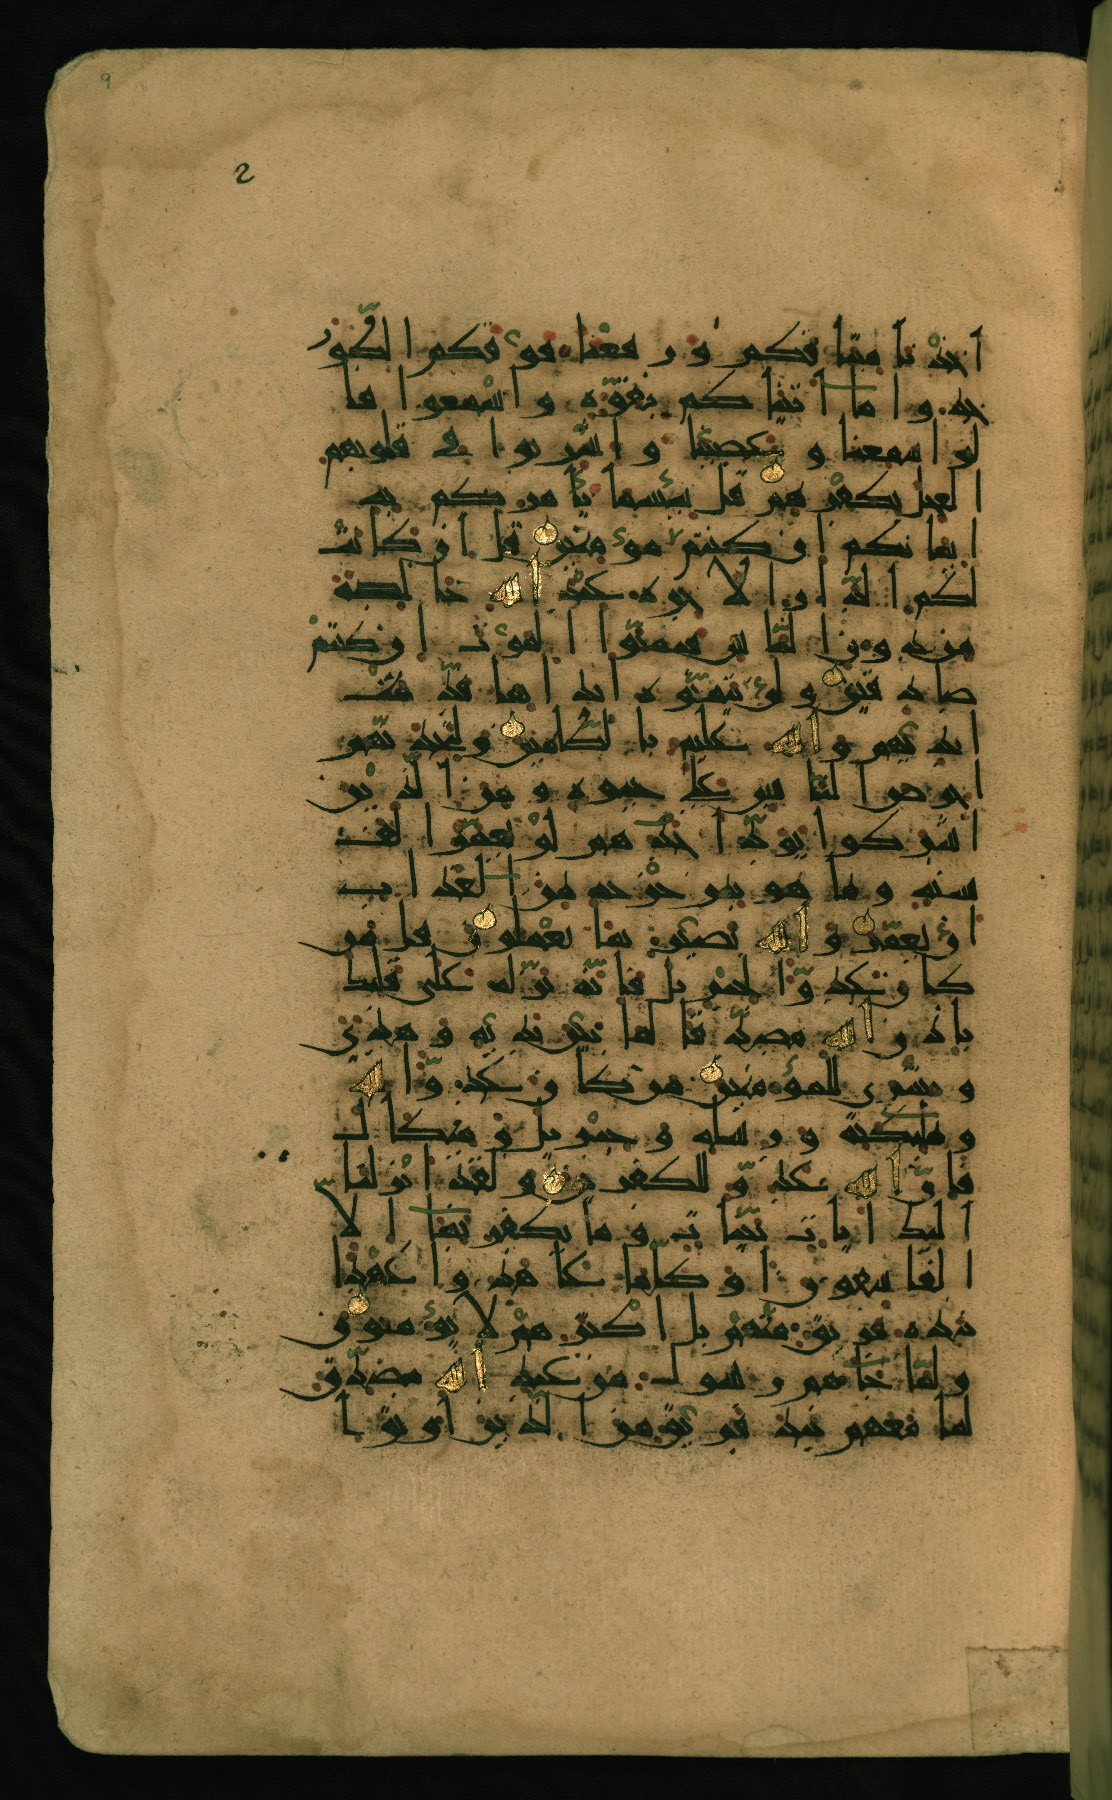 ٩
2
أخذنا ميثاقكم ورفعنا فوقكم الطور
خذوا ما اتيناكم بقوة واسمعوا قا
لوا سمعنا وعصينا واشربوا في قلوبهم
العجل بكفرهم قل بئسما يأمركم به
ايمانكم ان كنتم مؤمنين قل ان كانت
لكم الدار الاخرة عند الله خالصة
من دون الناس فتمنوا الموت ان كنتم
صادقين ولن يتمنوه ابدا بما قدمت
ايديهم والله عليم بالظالمين ولتجدنهم
احرص الناس على حيوة ومن الذين
اشركوا يود احدهم لو يعمر الف
سنة وما هو بمزحزحه من العذاب
ان يعمر والله بصير بما يعملون قل من
كان عدوا لجبريل فانه نزله على قلبك
باذن الله مصدقا لما بين يديه وهدى
وبشرى للمؤمنين من كان عدوا لله
وملئكته ورسله وجبريل وميكال
فان الله عدو للكفرين ولقد انزلنا
اليك ايات بينات وما يكفر بها الا
الفاسقون اوكلما عاهدوا عهدا
نبذه فريق منهم بل اكثرهم لا يؤمنون
ولما جاهم رسول من عند الله مصدق
لما معهم نبذ فريق من الذين اوتوا